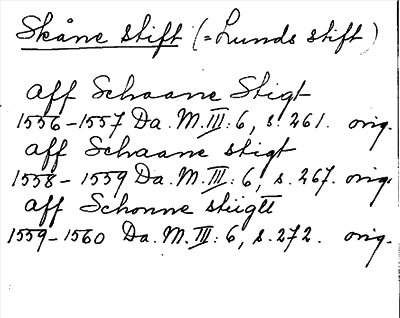 Skåne stift (= Lunds stift)
aff Schaane Stigt
1556-1557 Da. M. III: 6, s. 261. orig.
aff Schaane stigt
1558-1559 Da. M. III: 6, s. 267. orig.
aff Schonne stiigtt
1559-1560 Da. M. III: 6, s. 272. orig.